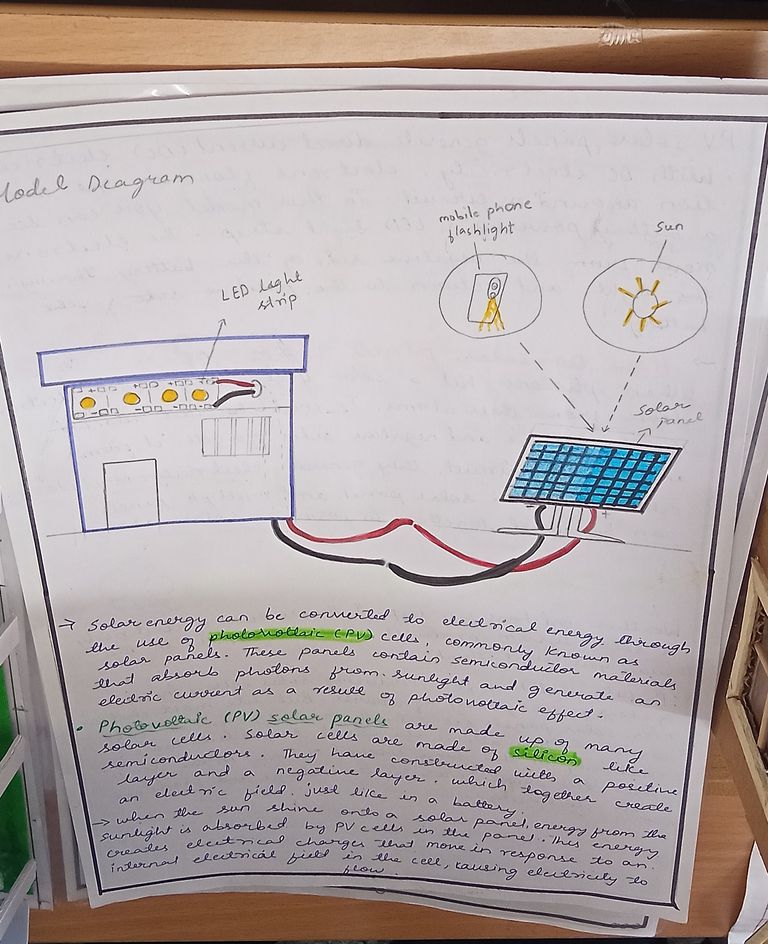 Model Diagram
mobile phone
flashlight
Sun
LED light
strip
Solar
panel
→ Solar energy can be converted to electrical energy through
the use of photovoltaic (PV) cells, commonly known as
solar panels. These panels contain semiconductor materials
that absorb photons from sunlight and generate an
electric current as a result of photovoltaic effect.
• Photovoltaic (PV) solar panels are made up of many
solar cells. Solar cells are made of silicon like
semiconductors. They have constructed with a positive
layer and a negative layer. which together create
an electric field, just like in a battery.
→ when the sun shine onto a solar panel, energy from the
sunlight is absorbed by PV cells in the panel. This energy
creates electrical charges that move in response to an
internal electrical field in the cell, causing electricity to
flow.